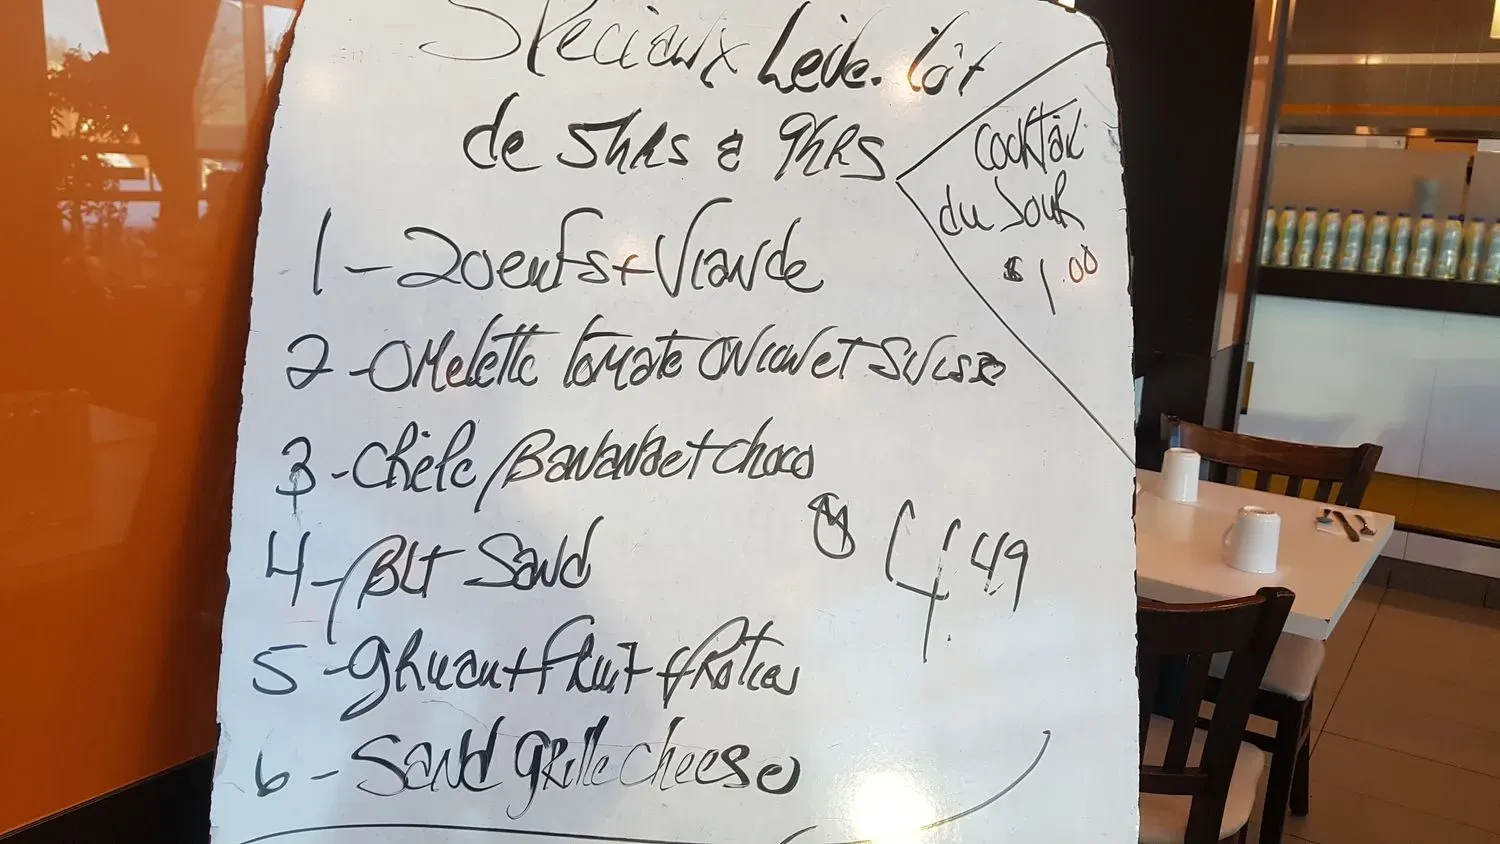 Spéciaux Lève-tôt
de 5hrs à 9hrs
Cocktail
du Jour
$1.00
1 - 2 oeufs + Viande
2 - Omelette tomate onion et Suisse
3 - Crêpe / Banane et choco
4 - BLT Sand
$4.49
5 - gruau + fruit + rôties
6 - Sand grille cheese